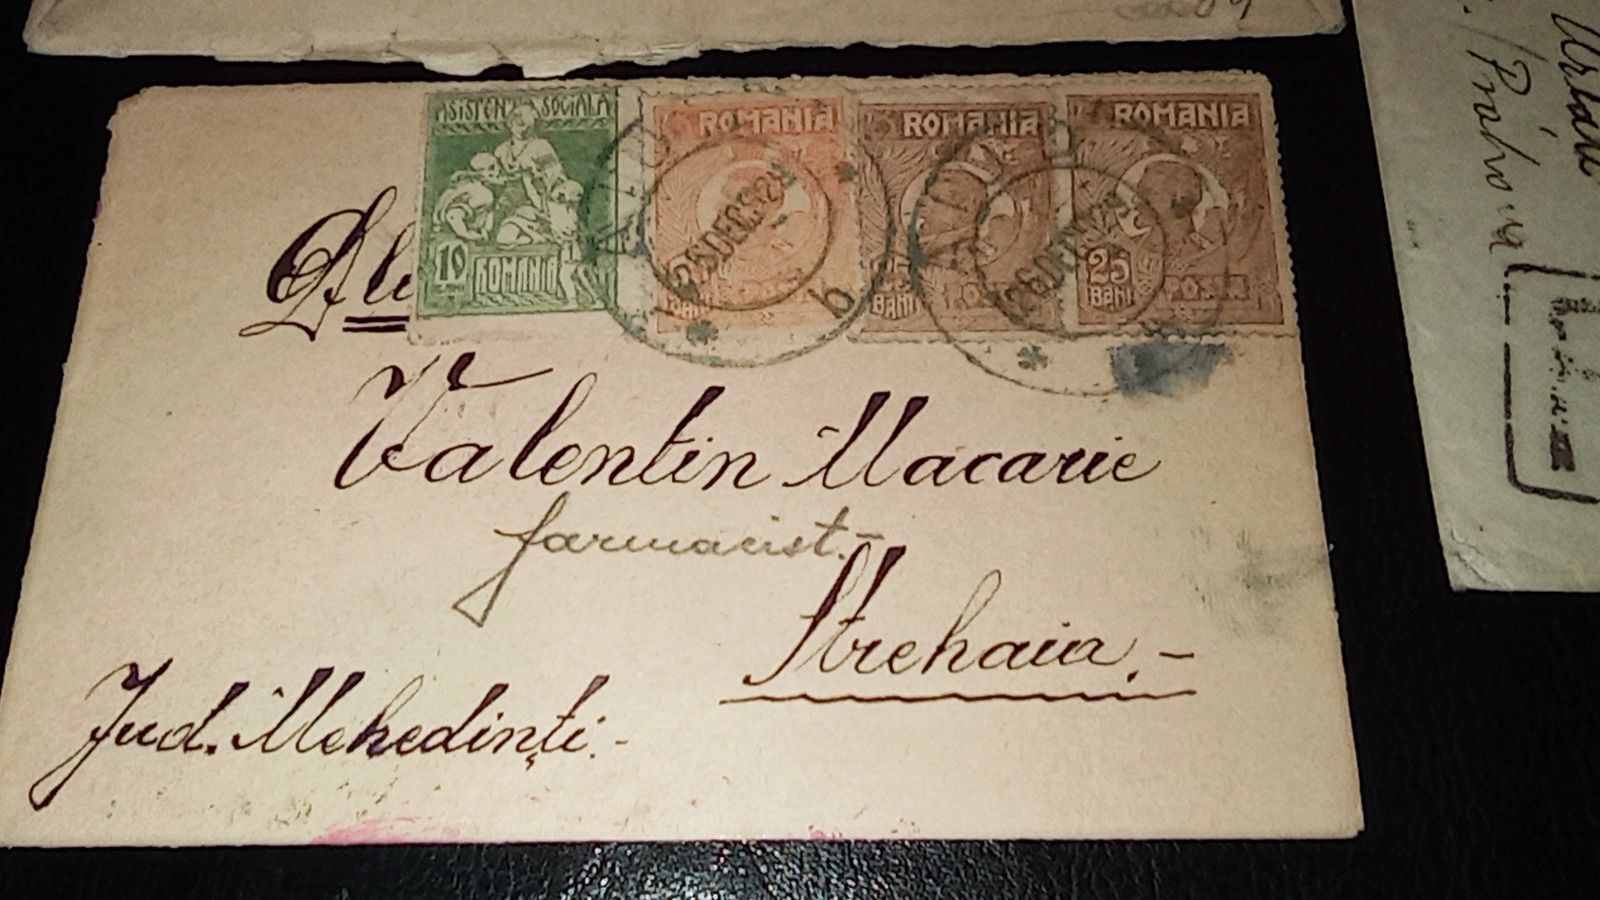 ASISTENȚA SOCIALĂ
10
ROMANIA
ROMANIA
ROMANIA
25
BANI
ROMANIA
25
BANI
POSTA
25 DEC 924
b
26 DEC
Valentin Macarie
farmacist.-
Strehaia.-
Jud. Mehedinți.-
Urlați
Prahova